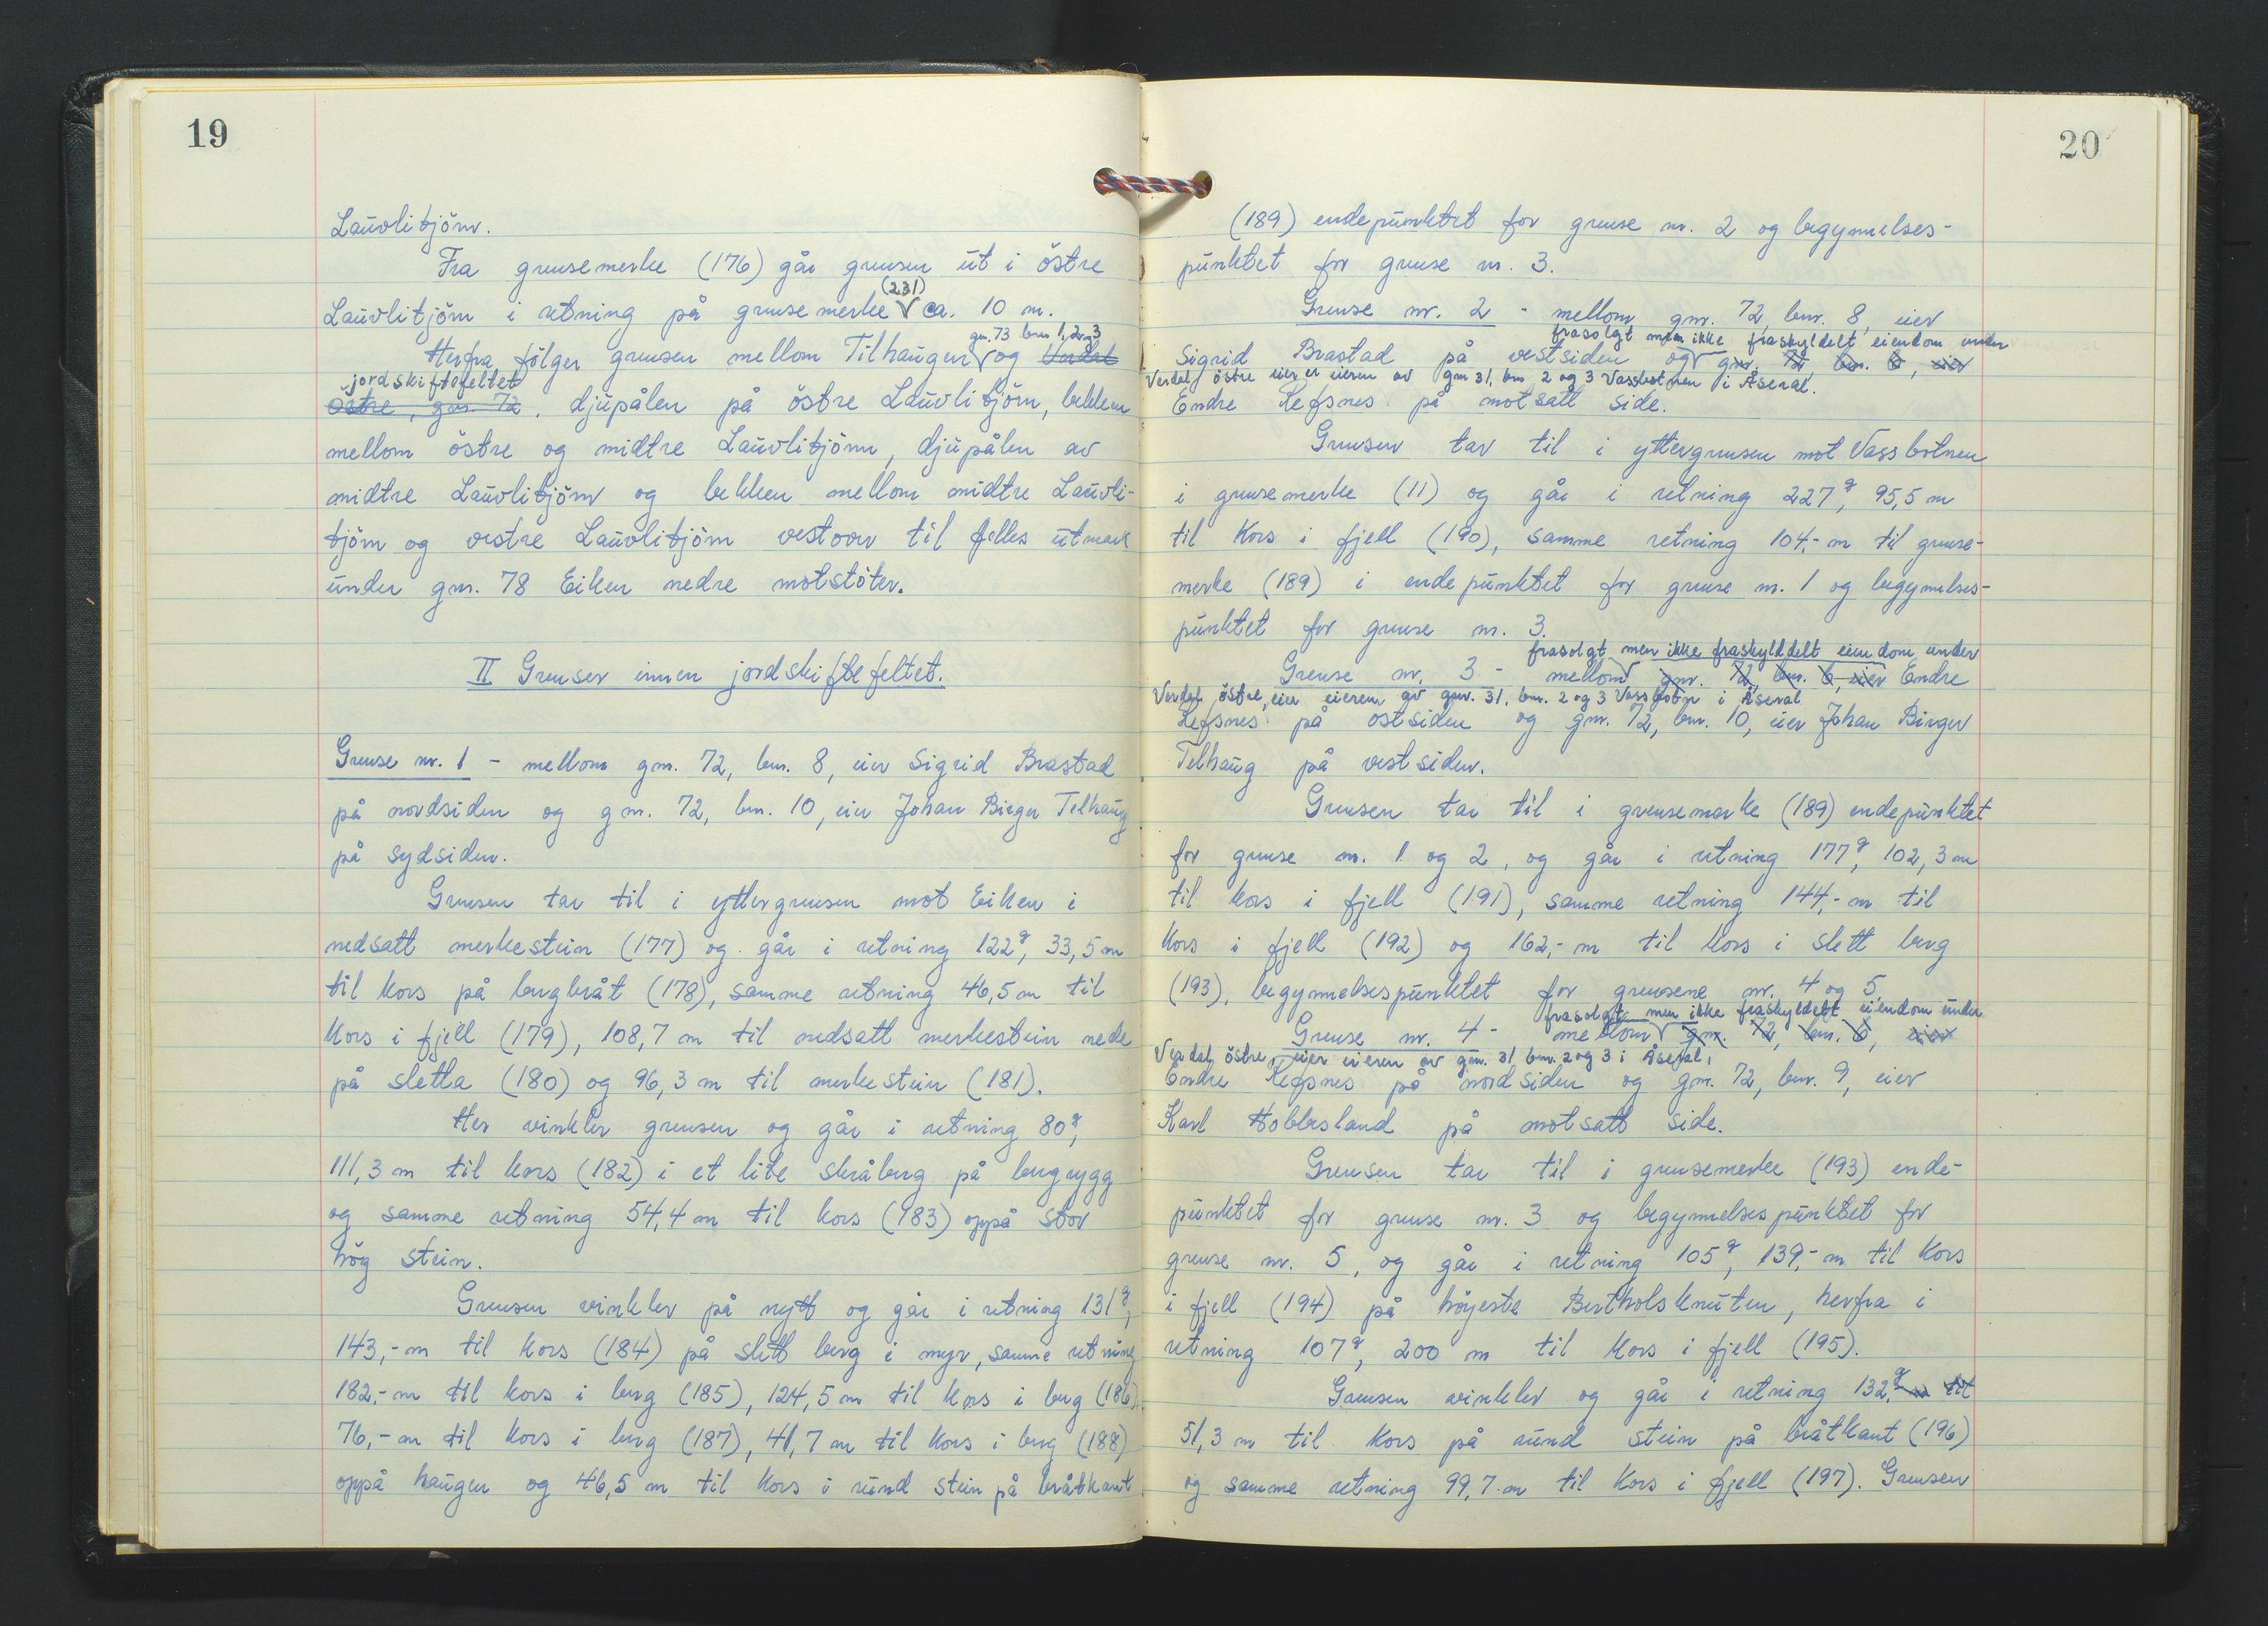 19
Lauvlitjörn.
Fra grensemerke (176) går grensen ut i östre
(231)
Lauvlitjörn i retning på grensemerke V ca. 10 m.
gnr. 73 bnr 1, 2 og 3
Herfra fölger grensen mellom Tilhaugen V og Verdal
jordskiftefeltet
östre, gnr. 72, djupålen på östre Lauvlitjörn, bekken
mellom östre og midtre Lauvlitjörn, djupålen av
midtre Lauvlitjörn og bekken mellom midtre Lauvli-
tjörn og vestre Lauvlitjörn vestover til felles utmark
under gnr. 78 Eiken nedre motstöter.
II Grenser innen jordskiftefeltet.
Grense nr. 1 - mellom gnr. 72, bnr. 8, eier Sigrid Brastad
på nordsiden og gnr. 72, bnr. 10, eier Johan Birger Telhaug
på sydsiden.
Grensen tar til i yttergrensen mot Eiken i
nedsatt merkestein (177) og går i retning 122g, 33,5 m
til kors på bergbråt (178), samme retning 46,5 m til
kors i fjell (179), 108,7 m til nedsatt merkestein nede
på sletta (180) og 96,3 m til merkestein (181).
Her vinkler grensen og går i retning 80g,
111,3 m til kors (182) i et lite skråberg på bergrygg
og samme retning 54,4 m til kors (183) oppå stor
hög stein.
Grensen vinkler på nytt og går i retning 131g,
143,- m til kors (184) på slett berg i myr, samme retning
182,- m til kors i berg (185), 124,5 m til kors i berg (186)
76,- m til kors i berg (187), 41,7 m til kors i berg (188)
oppå haugen og 46,5 m til kors i rund stein på bråtkant
20
(189) endepunktet for grense nr. 2 og begynnelses-
punktet for grense nr. 3.
Grense nr. 2 - mellom gnr. 72, bnr. 8, eier
frasolgt men ikke fraskyldelt eiendom under
Sigrid Brastad på vestsiden og V gnr. 72, bnr. 6, eier
Verdal östre eier er eieren av gnr 31, bnr 2 og 3 Vassbotnen i Åseral.
Endre Refsnes på motsatt side.
Grensen tar til i yttergrensen mot Vassbotnen
i grensemerke (11) og går i retning 227g, 95,5 m
til kors i fjell (190), samme retning 104,- m til grense-
merke (189) i endepunktet for grense nr. 1 og begynnelses-
punktet for grense nr. 3.
frasolgt men ikke fraskylddelt eiendom under
Grense nr. 3 - mellom V gnr. 72, bnr. 6, eier Endre
Verdal östre, eier eieren av gnr. 31, bnr. 2 og 3 Vassbotn i Åseral
Refsnes på östsiden og gnr. 72, bnr. 10, eier Johan Birger
Telhaug på vestsiden.
Grensen tar til i grensemerke (189) endepunktet
for grense nr. 1 og 2, og går i retning 177g, 102,3 m
til kors i fjell (191), samme retning 144,- m til
kors i fjell (192) og 162,- m til kors i slett berg
(193), begynnelsespunktet for grensene nr. 4 og 5.
frasolgt men ikke fraskyldelt eiendom under
Grense nr. 4 - mellom V gnr. 72, bnr. 6, eier
Verdal östre, eier eieren av gnr. 31 bnr. 2 og 3 i Åseral,
Endre Refsnes på nordsiden og gnr. 72, bnr. 9, eier
Karl Hobbesland på motsatt side.
Grensen tar til i grensemerke (193) ende-
punktet for grense nr. 3 og begynnelsespunktet for
grense nr. 5, og går i retning 105g, 139,- m til kors
i fjell (194) på höyeste Bertholsknuten, herfra i
retning 107g, 200 m til kors i fjell (195).
Grensen vinkler og går i retning 132,g m til
51,3 m til kors på rund stein på bråtkant (196)
og samme retning 99,7 m til kors i fjell (197). Grensen